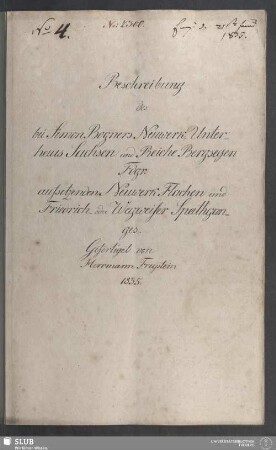 No. 4.
No: 2300.
1856.
Beschreibung
des
bei Simon Bogners Neuwerk Unter-
haus Sachsen und Reiche Bergsegen
Fdgr.
aufsetzenden Neuwerk Flachen und
Friedrich und Wegweiser Spathgan-
ges.
Gefertiget von
Herrmann Freystein
1855.
SLUB